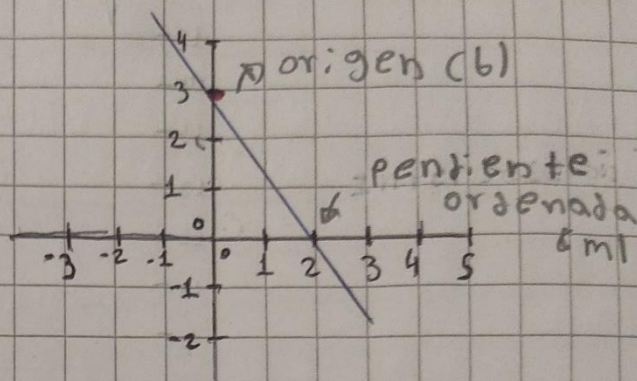 4
origen (b)
3
2
pendiente:
1
ordenada
0
(m)
-3 -2 -1 0 1 2 3 4 5
-1
-2